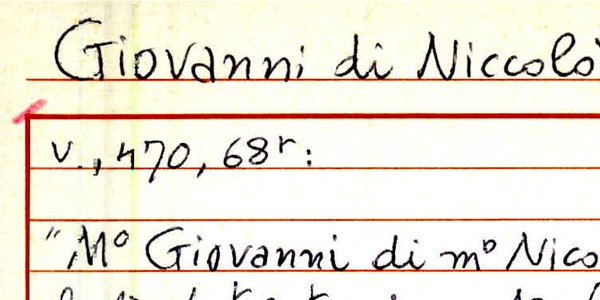 Giovanni di Niccolò
V., 470, 68r:
"Mo Giovanni di mo Nico